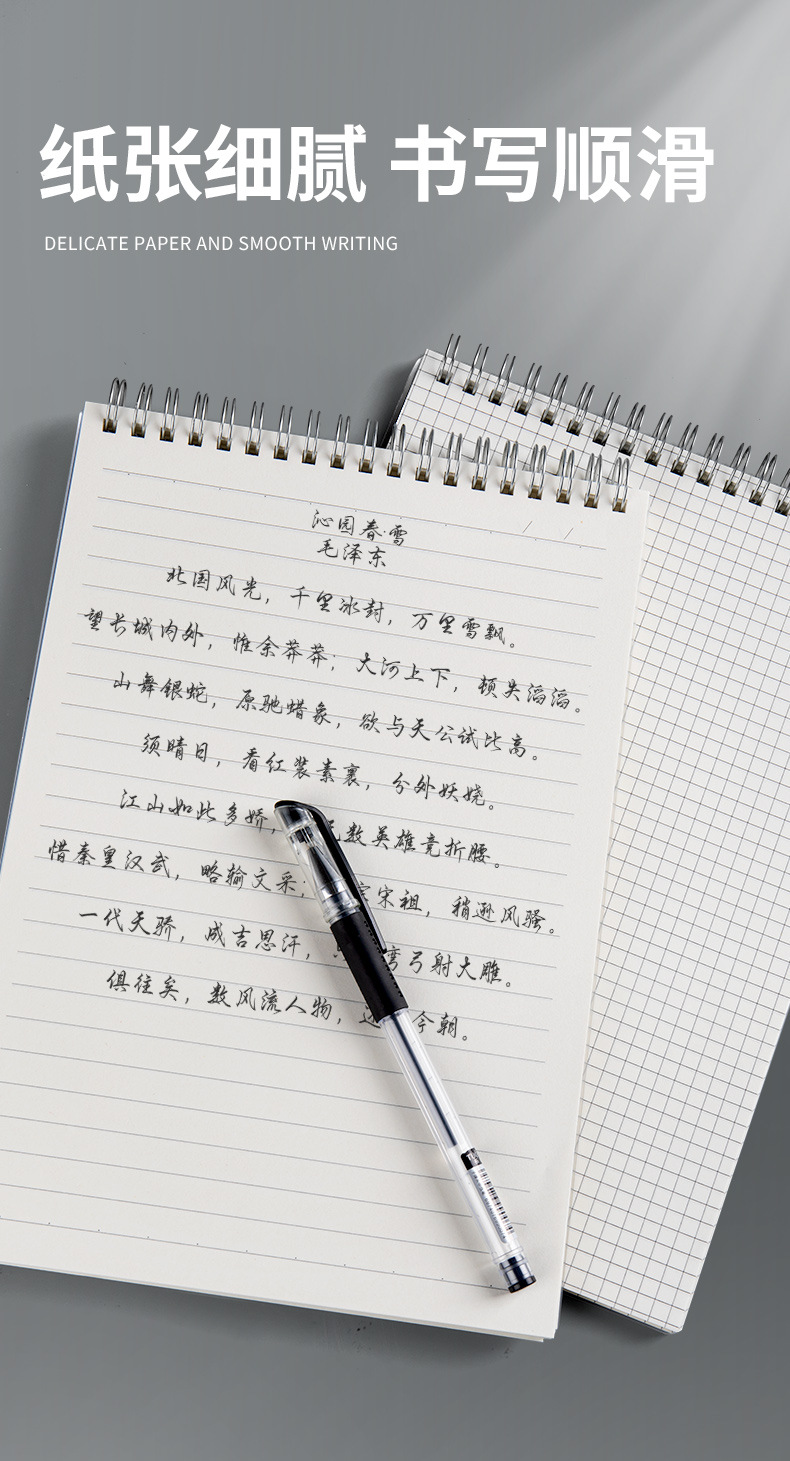 纸张细腻 书写顺滑
DELICATE PAPER AND SMOOTH WRITING
沁园春·雪
毛泽东
北国风光，千里冰封，万里雪飘。
望长城内外，惟余莽莽；大河上下，顿失滔滔。
山舞银蛇，原驰蜡象，欲与天公试比高。
须晴日，看红装素裹，分外妖娆。
江山如此多娇，数英雄竞折腰。
惜秦皇汉武，略输文采；宋祖，稍逊风骚。
一代天骄，成吉思汗，弯弓射大雕。
俱往矣，数风流人物，还今朝。